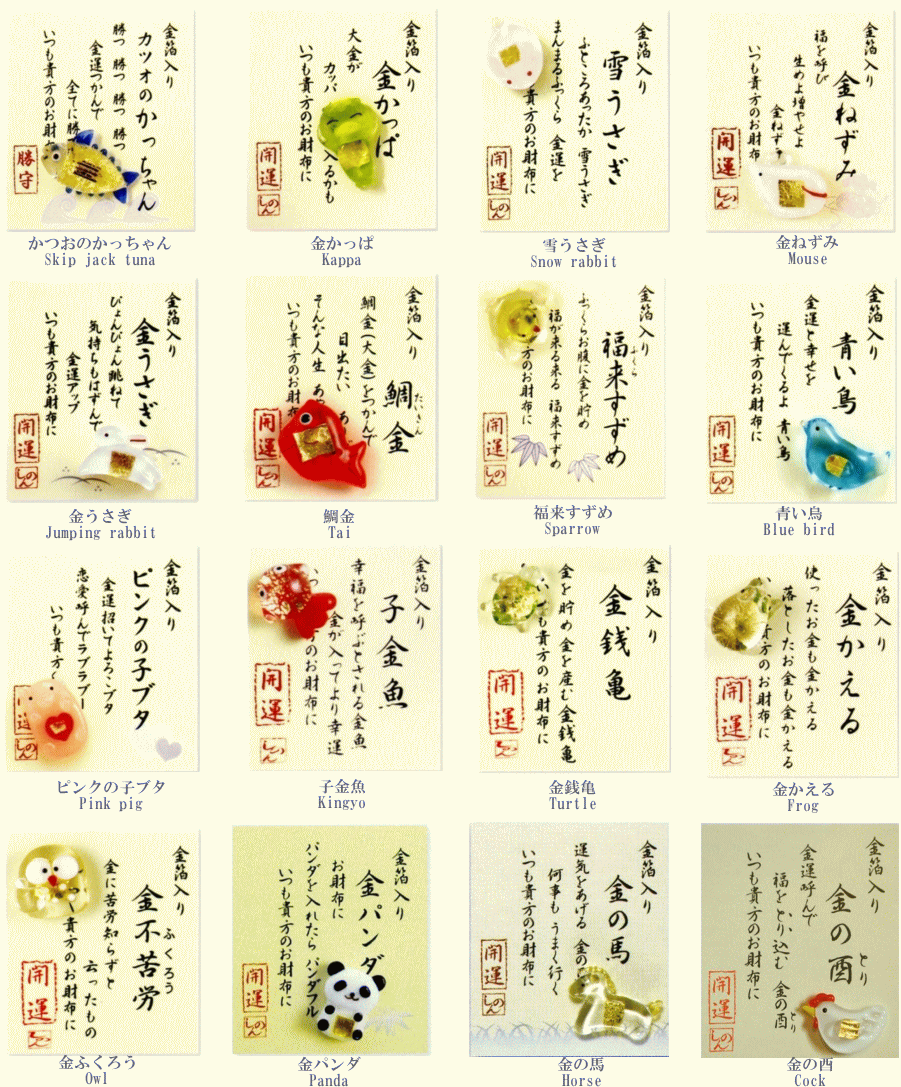 金箔入り
カツオのかっちゃん
勝つ 勝つ 勝つ 勝つ
金運つかんで
全てに勝
いつも貴方のお財
勝守
かつおのかっちゃん
Skip jack tuna
金箔入り
金かっぱ
大金が
カッパ
入るかも
いつも貴方のお財布に
開運
しのん
金かっぱ
Kappa
金箔入り
雪うさぎ
ふところあったか 雪うさぎ
まんまるふっくら 金運を
貴方のお財布に
開運
しのん
雪うさぎ
Snow rabbit
金箔入り
金ねずみ
福を呼び
生めよ増やせよ
金ねず
いつも貴方のお財布
開運
しのん
金ねずみ
Mouse
金箔入り
金うさぎ
ぴょんぴょん跳ねて
気持ちもはずんで
金運アップ
いつも貴方のお財布に
開運
しのん
金うさぎ
Jumping rabbit
金箔入り
鯛金
たいきん
鯛金(大金)をつかんで
目出たい
そんな人生 あ
いつも貴方のお財布に
開運
しのん
鯛金
Tai
金箔入り
福来すずめ
ふくら
ふっくらお腹に金を貯め
福が来る来る 福来すずめ
方のお財布に
開運
しのん
福来すずめ
Sparrow
金箔入り
青い鳥
金運と幸せを
運んでくるよ 青い鳥
いつも貴方のお財布に
開運
しのん
青い鳥
Blue bird
金箔入り
ピンクの子ブタ
金運招いてよろこブタ
恋愛呼んでラブラブー
いつも貴方
しのん
ピンクの子ブタ
Pink pig
金箔入り
子金魚
幸福を呼ぶとされる金魚
金が入ってより幸運
いつ
のお財布に
開運
しのん
子金魚
Kingyo
金箔入り
金銭亀
金を貯め金を産む金銭亀
いつも貴方のお財布に
開運
金銭亀
Turtle
金箔入り
金かえる
使ったお金も金かえる
落としたお金も金かえる
貴方のお財布に
開運
金かえる
Frog
金箔入り
金不苦労
ふくろう
金に苦労知らずと
云ったもの
貴方のお財布に
開運
金ふくろう
Owl
金箔入り
金パンダ
お財布に
パンダを入れたら パンダフル
いつも貴方のお財布に
開運
しのん
金パンダ
Panda
金箔入り
金の馬
運気をあげる 金の
何事も うまく行く
いつも貴方のお財布に
開運
しのん
金の馬
Horse
金箔入り
金の酉
とり
金運呼んで
福を とり込む 金の酉
とり
いつも貴方のお財布に
開運
しのん
金の酉
Cock